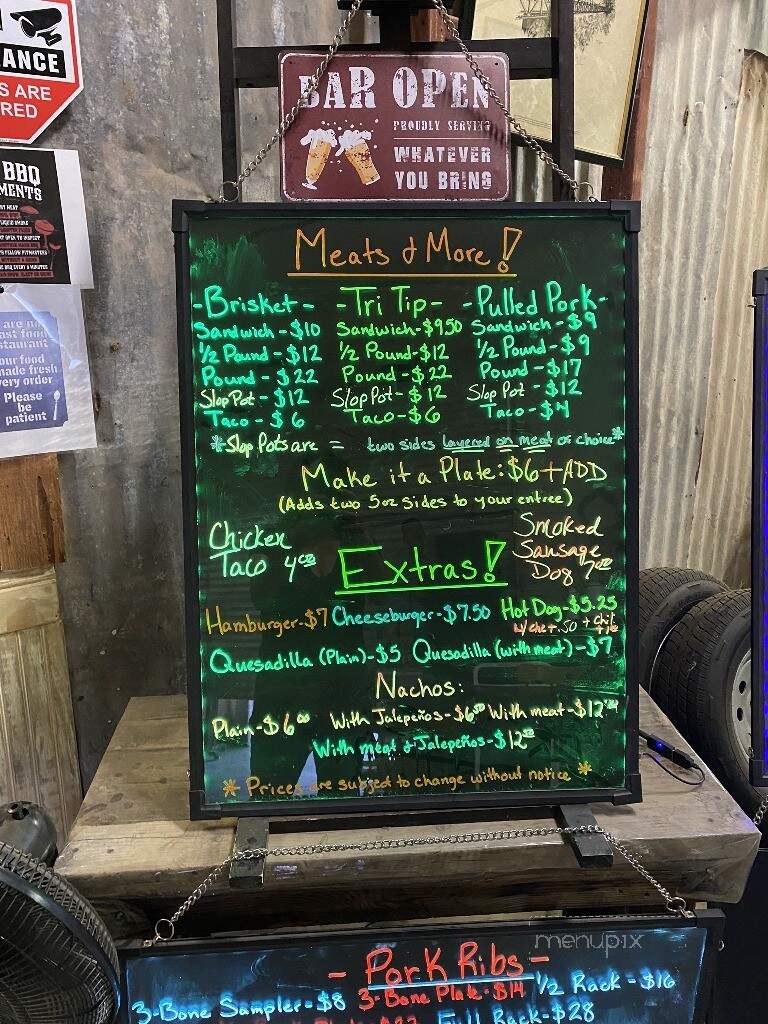 ANCE
S ARE
RED
BBQ
MENTS
BAR OPEN
PROUDLY SERVING
WHATEVER
YOU BRING
are no
ast food
staurant
our food
made fresh
very order
Please
be
patient
Meats & More!
-Brisket- -Tri Tip- -Pulled Pork-
Sandwich - $10 Sandwich - $9.50 Sandwich - $9
1/2 Pound - $12 1/2 Pound - $12 1/2 Pound - $9
Pound - $22 Pound - $22 Pound - $17
Slop Pot - $12 Slop Pot - $12 Slop Pot - $12
Taco - $6 Taco - $6 Taco - $4
*Slop Pots are = two sides layered on meat of choice*
Make it a Plate: $6 + ADD
(Adds two 5oz sides to your entree)
Chicken
Taco 4.00
Smoked
Sausage
Dog 7.00
Extras!
Hamburger - $7 Cheeseburger - $7.50 Hot Dog - $5.25
Quesadilla (Plain) - $5 Quesadilla (with meat) - $7
Nachos:
Plain - $6.00 With Jalepeños - $6.50 With meat - $12
With meat & Jalepeños - $12
* Prices are subject to change without notice *
menupix
- Pork Ribs -
3-Bone Sampler - $8 3-Bone Plate - $14 1/2 Rack - $16
Full Rack - $28